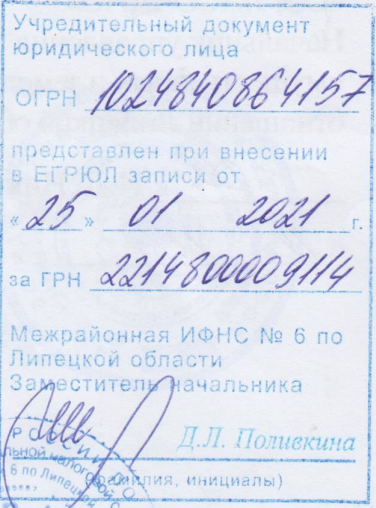 Учредительный документ
юридического лица
ОГРН 1024840864157
представлен при внесении
в ЕГРЮЛ записи от
« 25 » 01 2021 г.
за ГРН 2214800009114
Межрайонная ИФНС № 6 по
Липецкой области
Заместитель начальника
Д.Л. Поливкина
(фамилия, инициалы)
льной налоговой с
6 по Липецкой